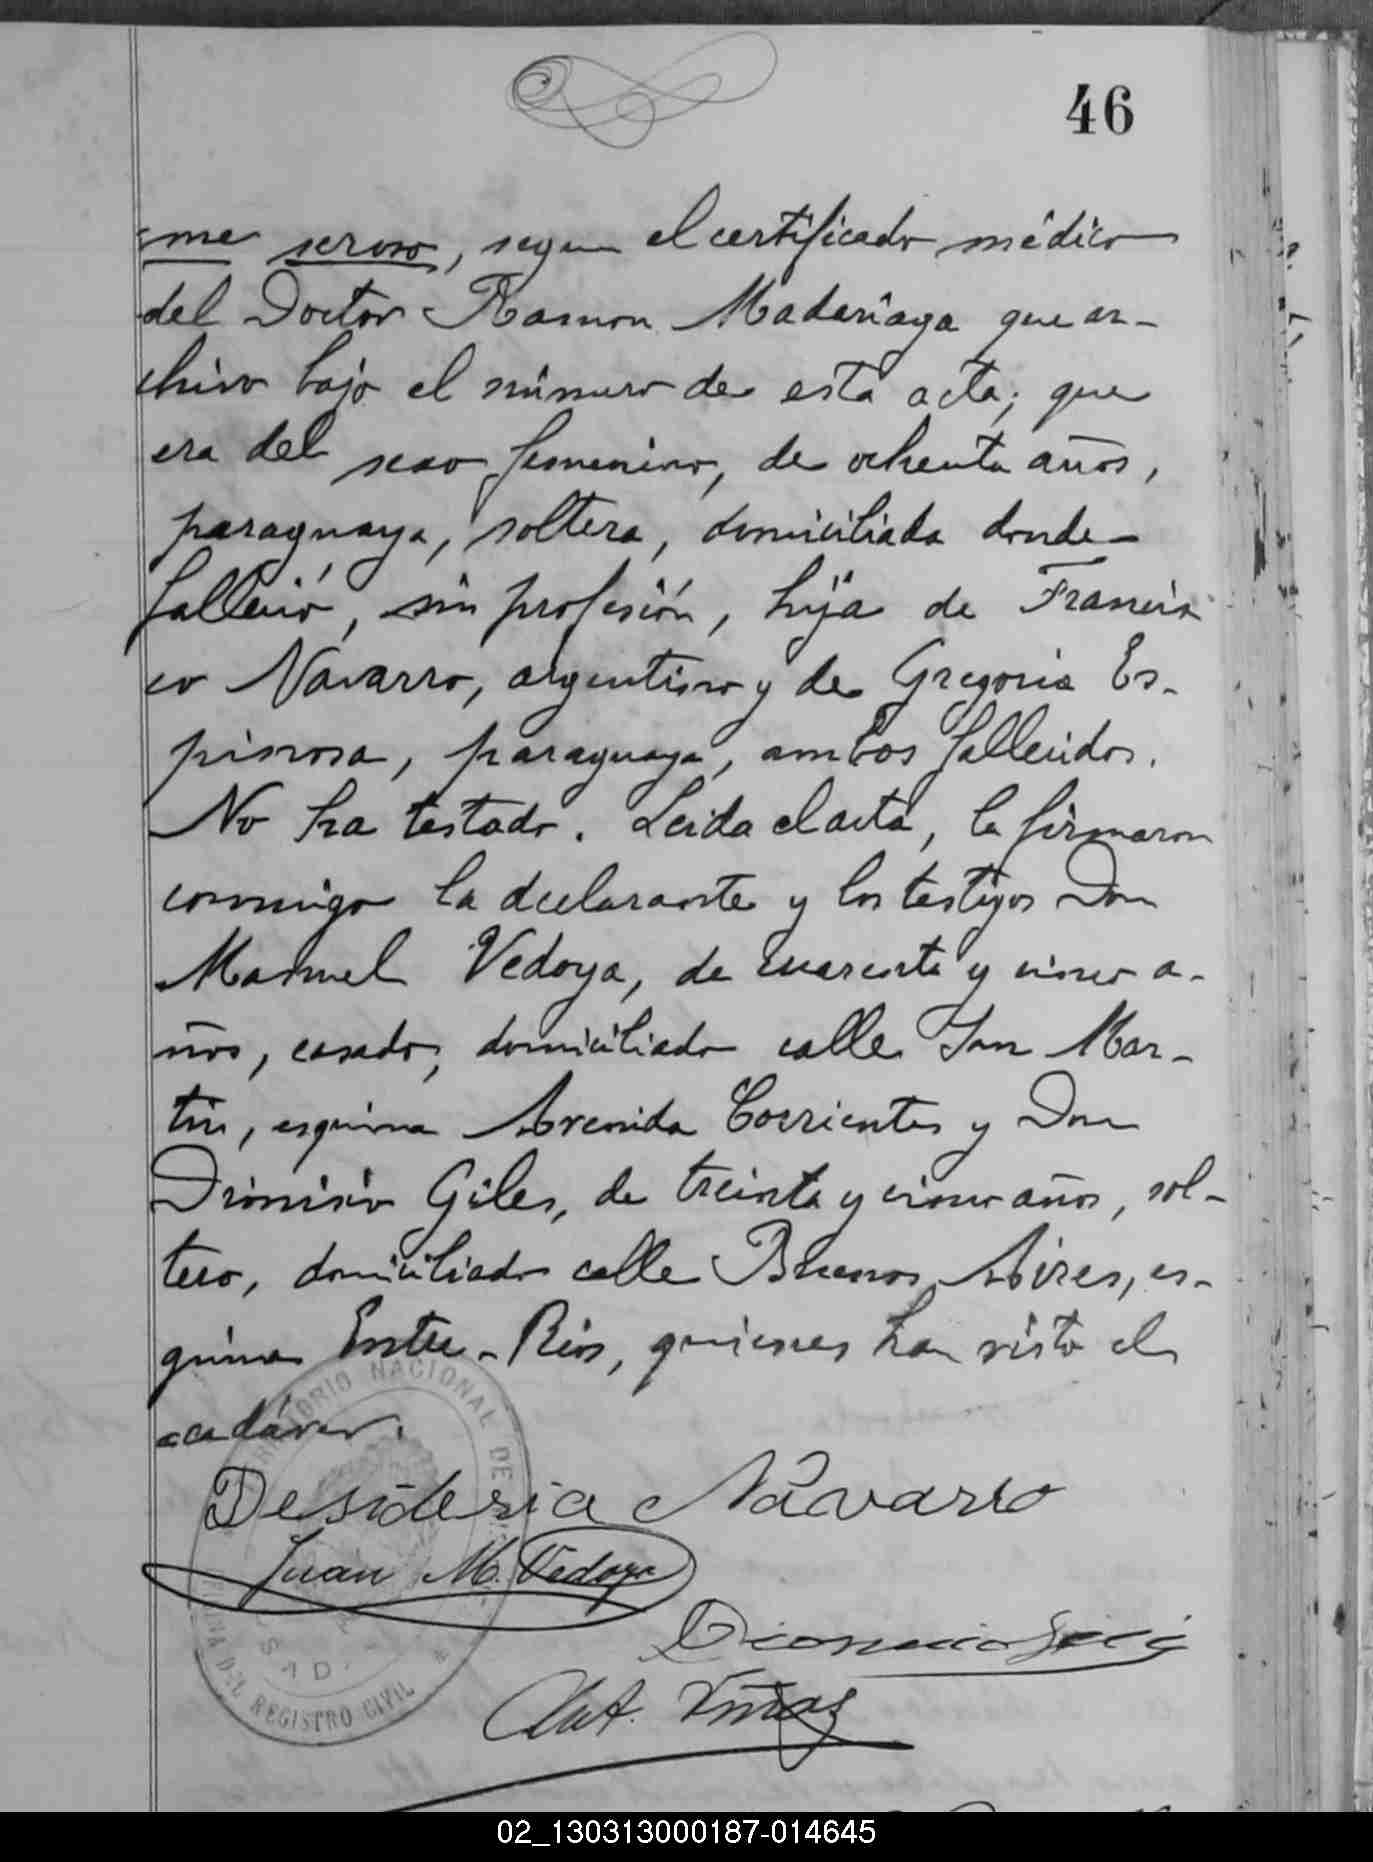 46
=me seroso, segun el certificado médico
del Doctor Ramon Madariaga que ar-
chivo bajo el número de esta acta; que
era del sexo femenino, de ochenta años,
paraguaya, soltera, domiciliada donde
falleció, sin profesión, hija de Francis
co Navarro, argentino y de Gregoria Es-
pinosa, paraguaya, ambos fallecidos.
No ha testado. Leida el acta, la firmaron
conmigo la declarante y los testigos Don
Manuel Vedoya, de cuarenta y cinco a-
ños, casado, domiciliado calle San Mar-
tin, esquina Avenida Corrientes y Don
Dionisio Giles, de treinta y cinco años, sol-
tero, domiciliado calle Buenos Aires, es-
quina Entre-Rios, quienes han visto el
cadáver.
Desideria Navarro
Juan M. Vedoya
Dionicio
Ant.
TERRITORIO NACIONAL DE
OFICINA DEL REGISTRO CIVIL
02_130313000187-014645